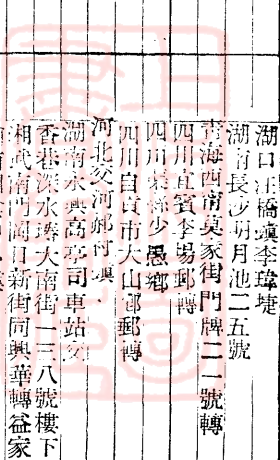 湖口江橋鎮李瑋堤
湖南長沙明月池二五號
青海西南莫家街門牌二一號轉
四川宜賓李場郵轉
四川渠縣少愚鄉
四川自貢市大山鋪郵轉
河北交河郝村鎮
湖南永興高亭司車站交
香巷深水埗大南街一三八號樓下
湘武南門閣口新街同興華轉益家